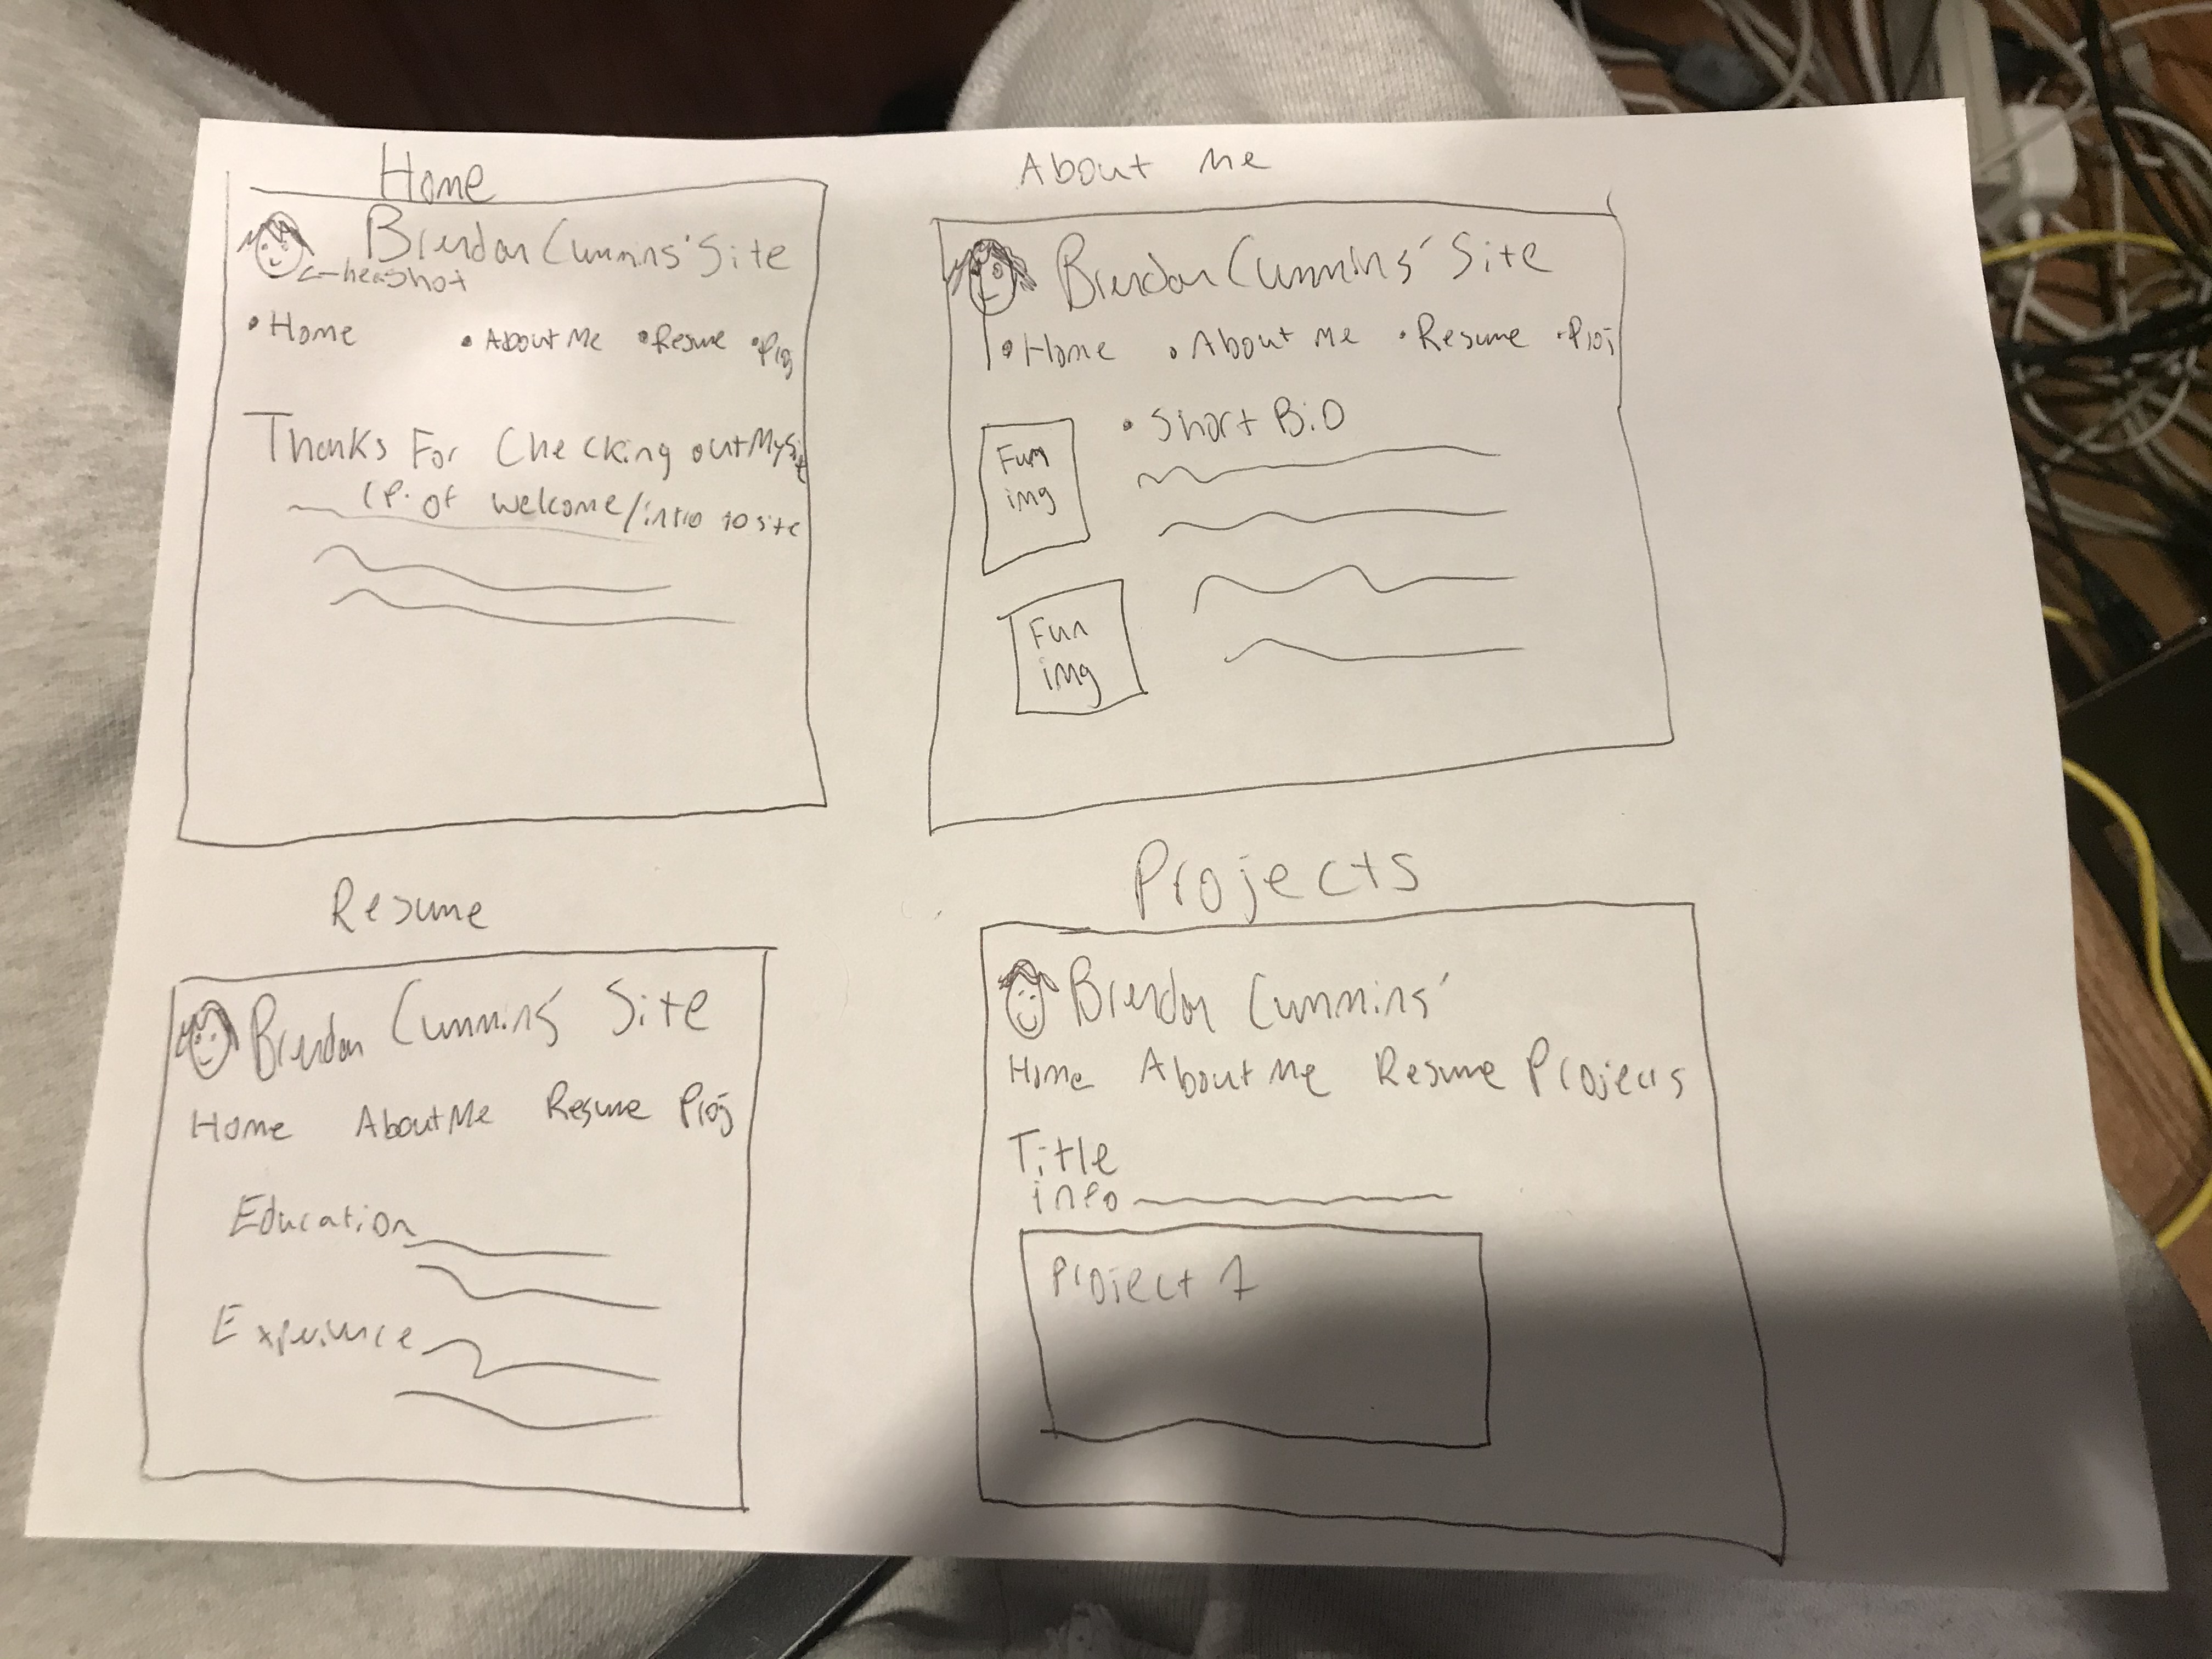 Home
Brendan Cummins' Site
headshot
• Home • About Me • Resume • Proj
Thanks For Checking out My Site
1 P. of welcome/intro to site
About Me
Brendan Cummins' Site
• Home • About Me • Resume • Proj
• Short Bio
Fun
img
Fun
img
Resume
Brendan Cummins' Site
Home About Me Resume Proj
Education
Experience
Projects
Brendan Cummins'
Home About Me Resume Projects
Title
info
Project 1